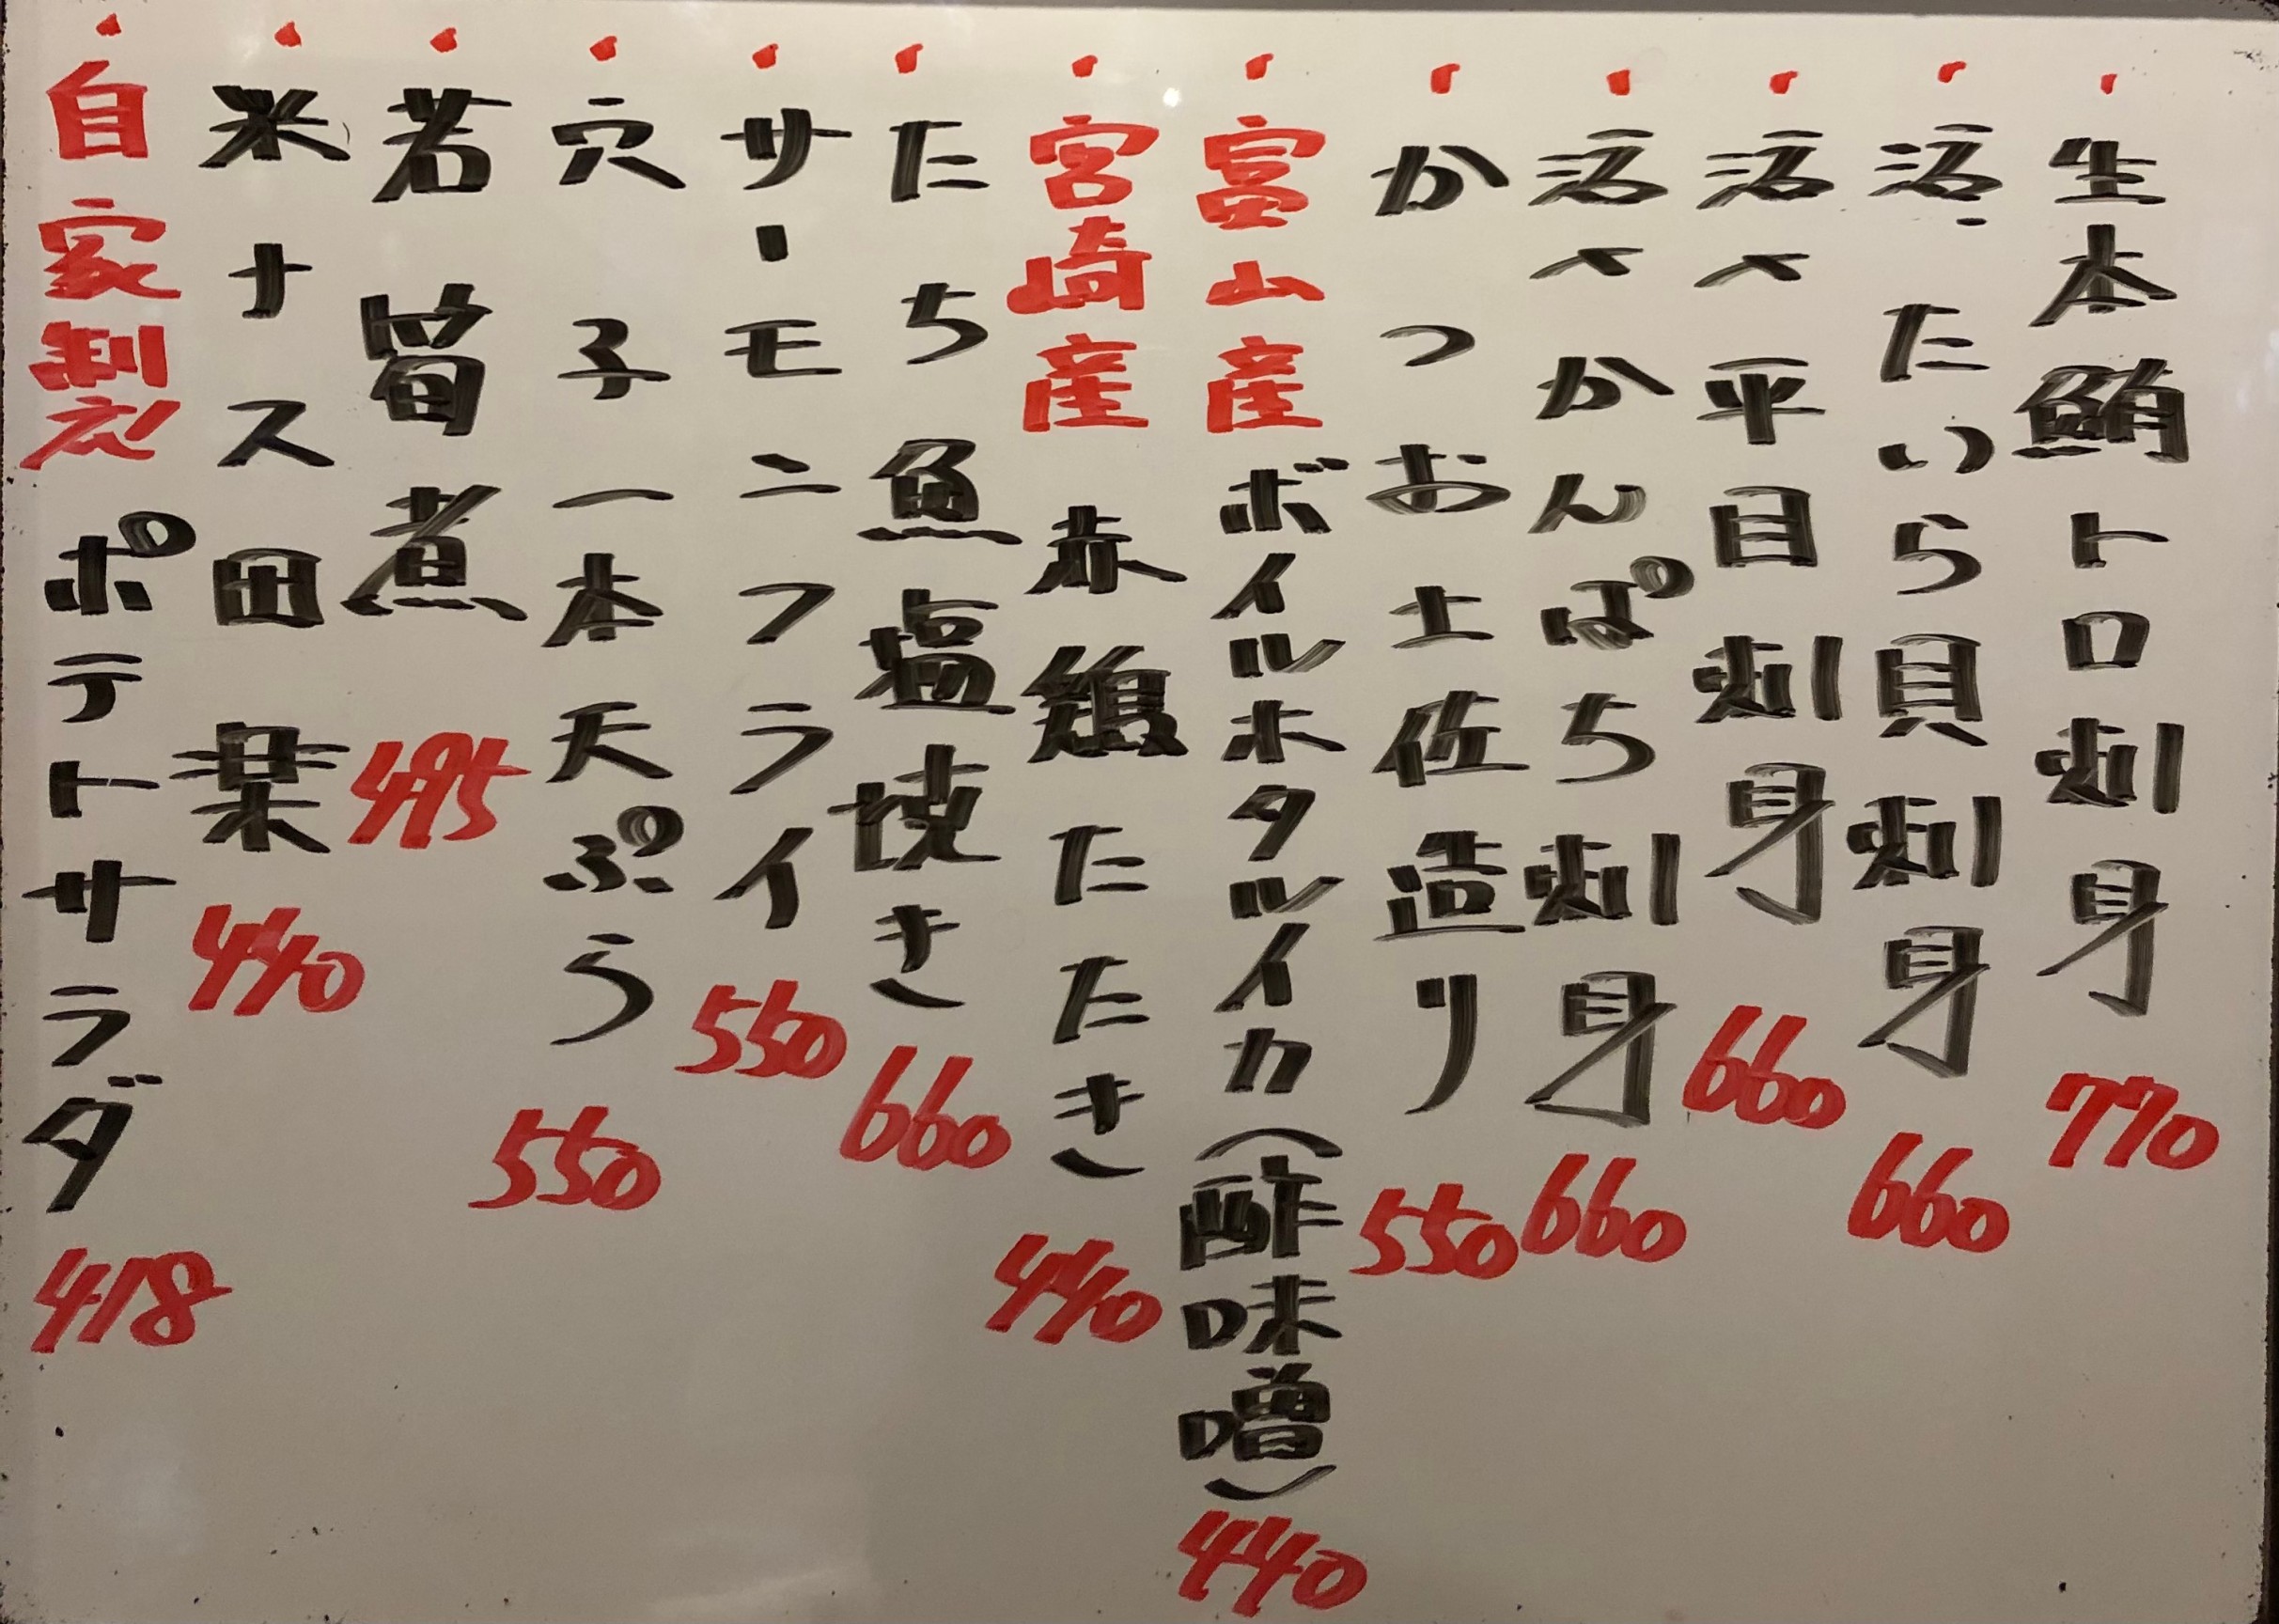 ・生本鮪トロ刺身 770
・活・たいら貝刺身 660
・活〆平目刺身 660
・活〆かんぱち刺身 660
・かつお土佐造り 550
・富山産ボイルホタルイカ(酢味噌) 440
・宮崎産赤鶏たたき 440
・たち魚塩焼き 660
・サーモンフライ 550
・穴子一本天ぷら 550
・若筍煮 495
・米ナス田楽 440
・自家製ポテトサラダ 418